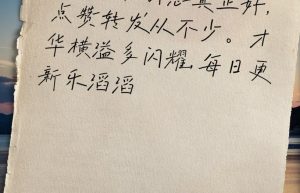 真正好,
点赞转发从不少。才
华横溢多闪耀,每日更
新乐滔滔